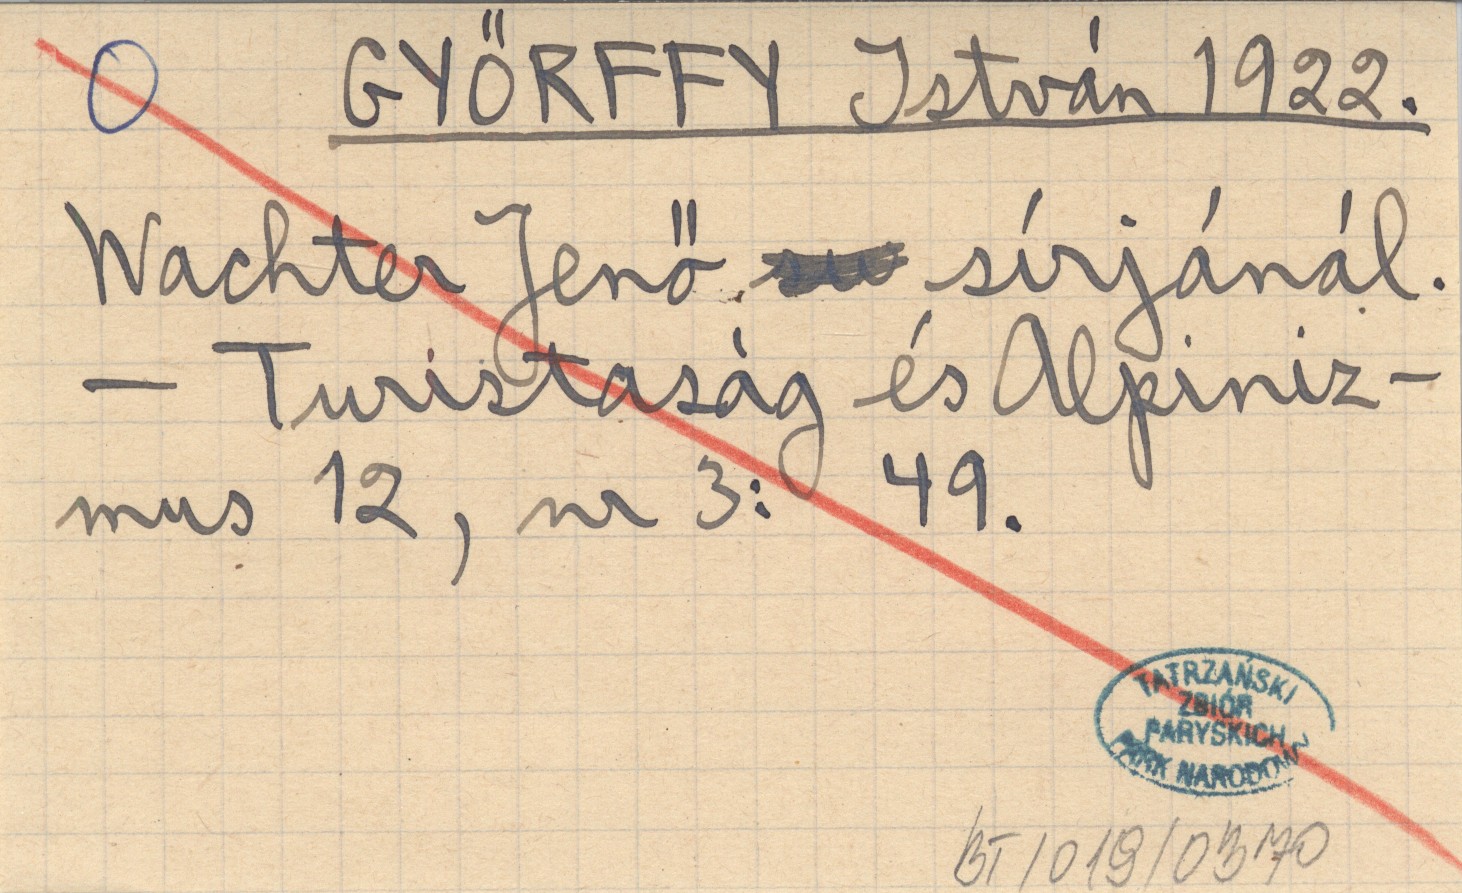 O GYŐRFFY István 1922.
Wachter Jenő sírjánál.
— Turistaság és Alpiniz-
mus 12, nr 3: 49.
TATRZAŃSKI
ZBIÓR
PARYSKICH
PARK NARODOWY
BT/019/0370